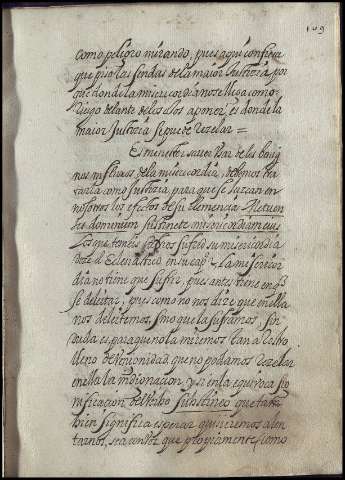 109
como peligro mirando, pues aqui confiesa
que pisa las sendas de la maior Justizia, por
que donde la misericordia nos tiene como
Riego delante de los ojos a poner, es donde la
maior Justizia se puede Rezelar =
Es menester para usar de los benig
nos influxos de la misericordia, debemos tra
tarla como Justizia, para que se luzcan en
nosotros los efectos de su clemencia Metuen
tes dominum sustinete misericordiam eius
Los que temeis a Dios sufrid su misericordia
Dize el Eclesiastico en su cap. La misericor
dia no tiene que sufrir, pues antes tiene en q
se deleitar, pues como no nos dize que en ella
nos deleitemos, sino que la suframos, sin
duda es, para que no la miremos tan a lo tro
deno de vonidad, que no podamos Rezelar
en ella la indignacion, y si en la equivoca sig
nificacion del verbo Sustineo que tam
bien significa esperar quisieremos alen
tarnos, sea con ver que propiamente, como